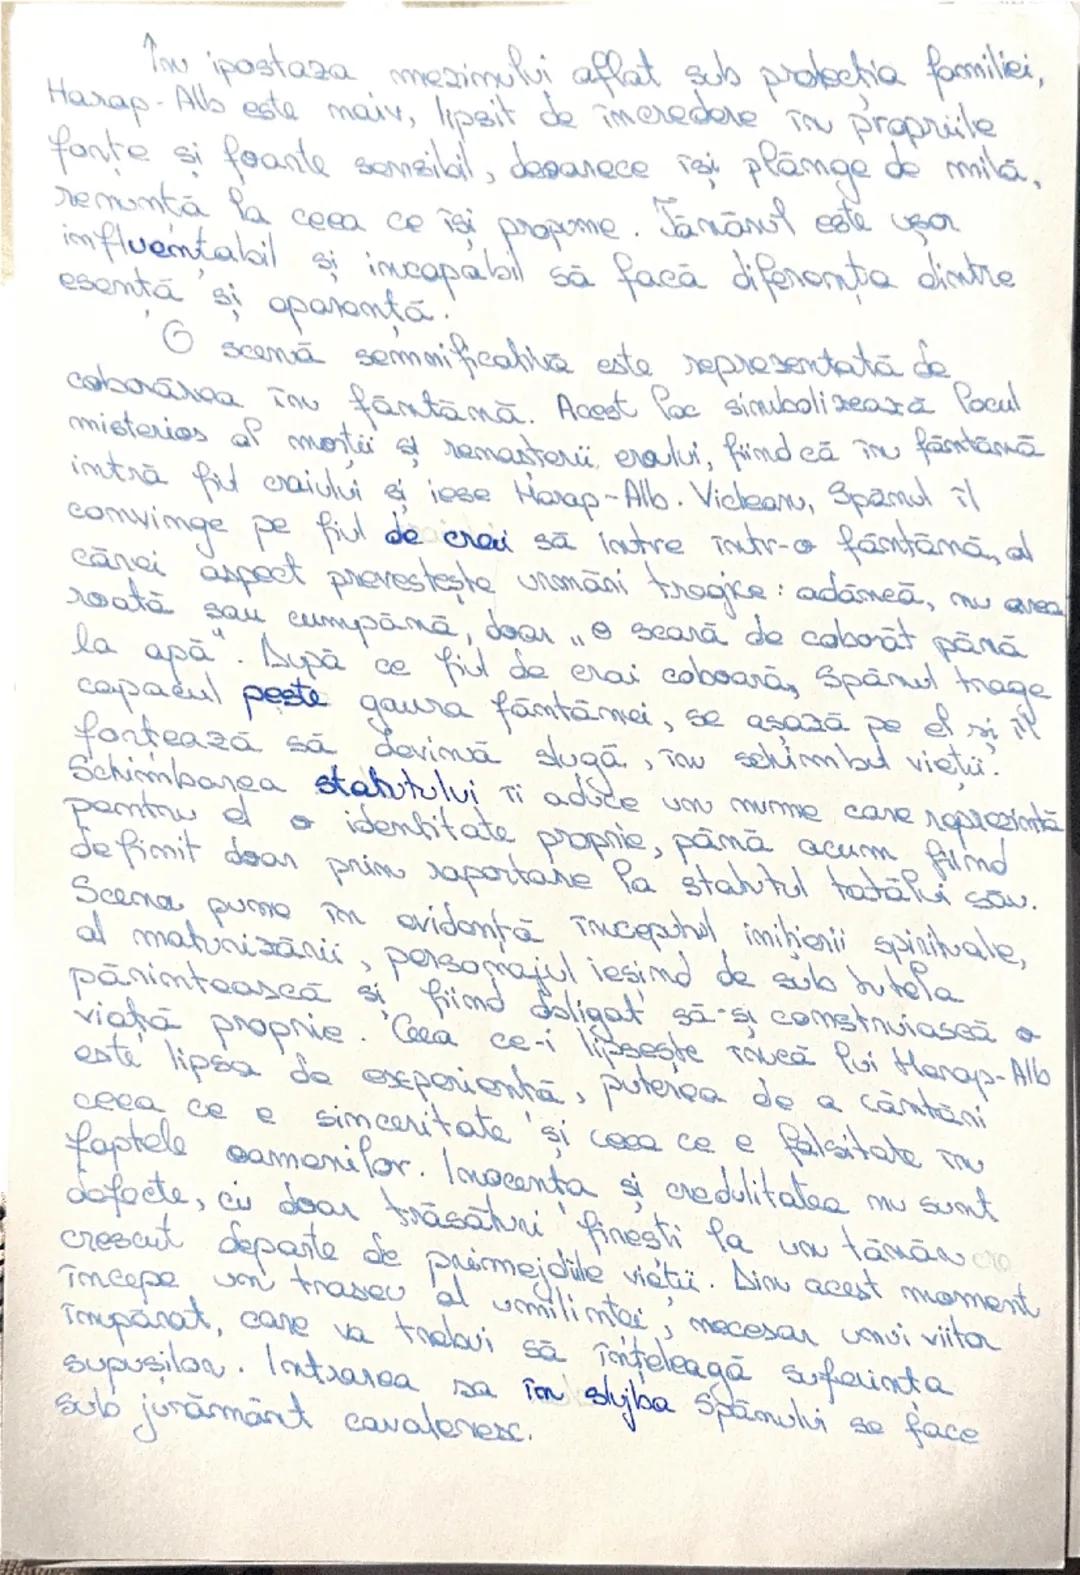 În ipostaza mezinului aflat sub protecția familiei,
Harap-Alb este naiv, lipsit de încredere în propriile
forțe și foarte sensibil, deoarece își plânge de milă,
renunță la ceea ce își propune. Tânărul este ușor
influențabil și incapabil să facă diferența dintre
esență și aparență.
O scenă semnificativă este reprezentată de
coborârea în fântână. Acest loc simbolizează locul
misterios al morții și renașterii eroului, fiindcă în fântână
intră fiul craiului și iese Harap-Alb. Viclean, Spânul îl
convinge pe fiul de crai să intre într-o fântână, al
cărei aspect prevestește urmări tragice: adâncă, nu avea
roată sau cumpănă, doar „o scară de coborât până
la apă". După ce fiul de crai coboară, Spânul trage
capacul peste gaura fântânei, se așază pe el și îl
forțează să devină slugă, în schimbul vieții.
Schimbarea statutului îi aduce un nume care reprezintă
pentru el o identitate proprie, până acum fiind
definit doar prin raportare la statutul tatălui său.
Scena pune în evidență începutul inițierii spirituale,
al maturizării, personajul ieșind de sub tutela
părintească și fiind obligat să-și construiască o
viață proprie. Ceea ce-i lipsește încă lui Harap-Alb
este lipsa de experiență, puterea de a cântări
ceea ce e sinceritate și ceea ce e falsitate în
faptele oamenilor. Inocența și credulitatea nu sunt
defecte, ci doar trăsături firești la un tânăr
crescut departe de primejdiile vieții. Din acest moment
începe un traseu al umilinței, necesar unui viitor
împărat, care va trebui să înțeleagă suferința
supușilor. Intrarea sa în slujba Spânului se face
sub jurământ cavaleresc.